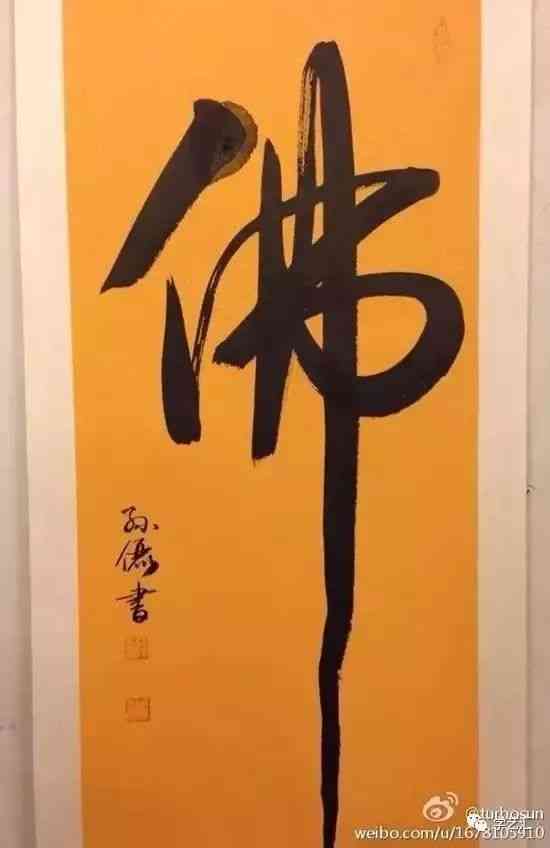 佛
孙儷書
@turbosun
weibo.com/u/1678105910